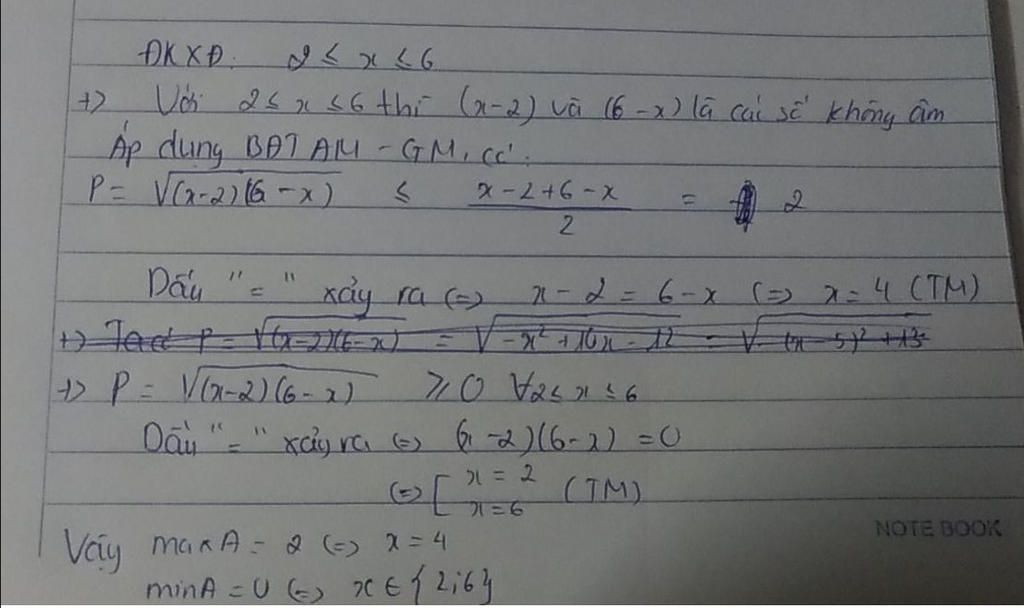 ĐKXĐ: 2 ≤ x ≤ 6
+> Với 2 ≤ x ≤ 6 thì (x-2) và (6-x) là các số không âm
Áp dụng BĐT AM-GM, có:
P = √(x-2)(6-x) ≤ (x-2+6-x)/2 = 2
Dấu "=" xảy ra (=) x-2 = 6-x (=) x=4 (TM)
+> Ta có P = √(x-2)(6-x) = √-x²+16x-12 = √-(x-5)²+13
+> P = √(x-2)(6-x) ≥ 0 ∀2≤x≤6
Dấu "=" xảy ra (=) (x-2)(6-x) = 0
(=) [ x=2
x=6 (TM)
Vậy maxA = 2 (=) x=4
minA = 0 (=) x ∈ {2;6}
NOTE BOOK